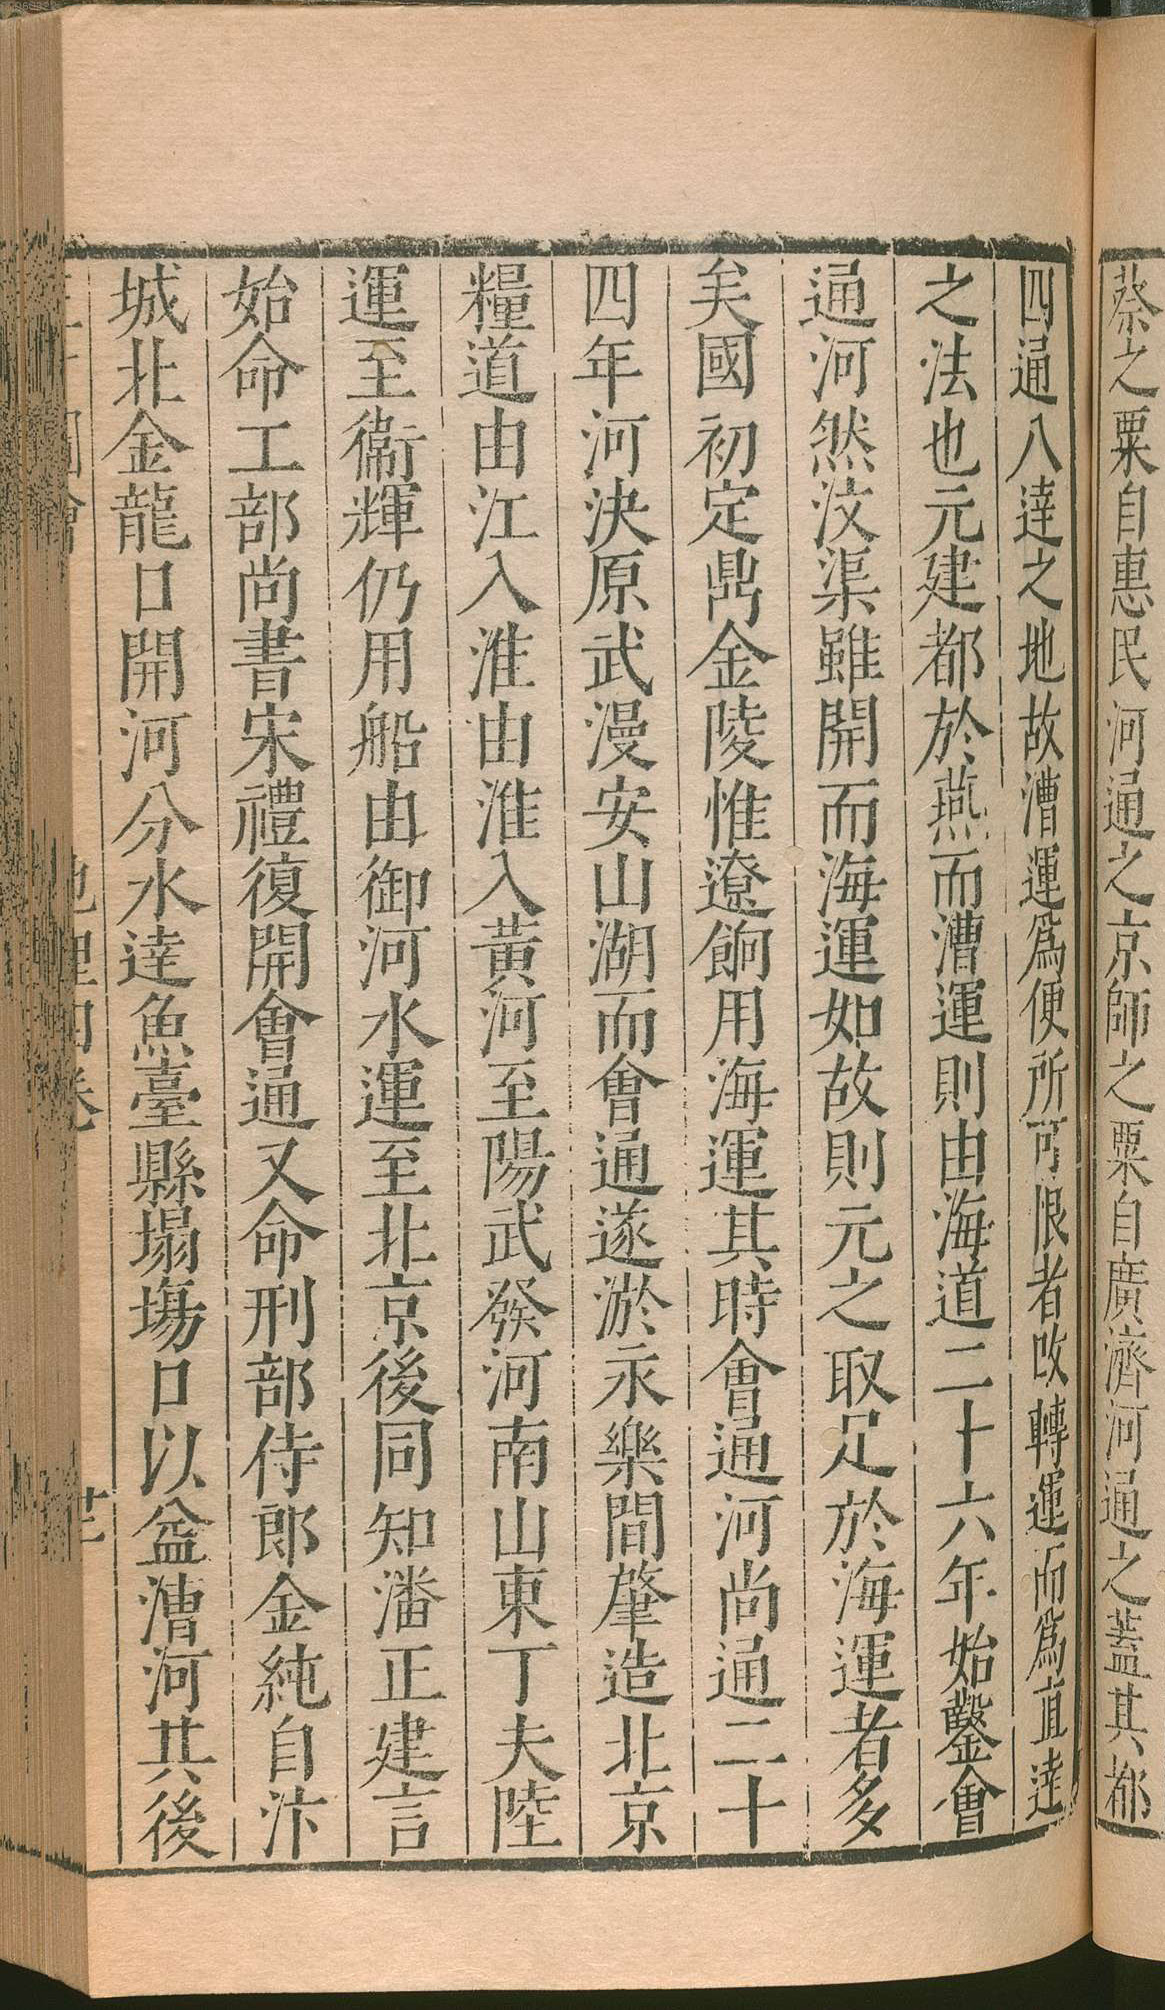 蔡之粟自惠民河通之京師之粟自廣濟河通之蓋其都
四通八達之地故漕運爲便所可恨者改轉運而爲直達
之法也元建都於燕而漕運則由海道二十六年始鑿會
通河然汶渠雖開而海運如故則元之取足於海運者多
矣國初定鼎金陵惟遼餉用海運其時會通河尚通二十
四年河決原武漫安山湖而會通遂淤永樂間肇造北京
糧道由江入淮由淮入黃河至陽武發河南山東丁夫陸
運至衞輝仍用船由御河水運至北京後同知潘正建言
始命工部尚書宋禮復開會通又命刑部侍郎金純自汴
城北金龍口開河分水達魚臺縣塌塲口以益漕河其後
地理四卷